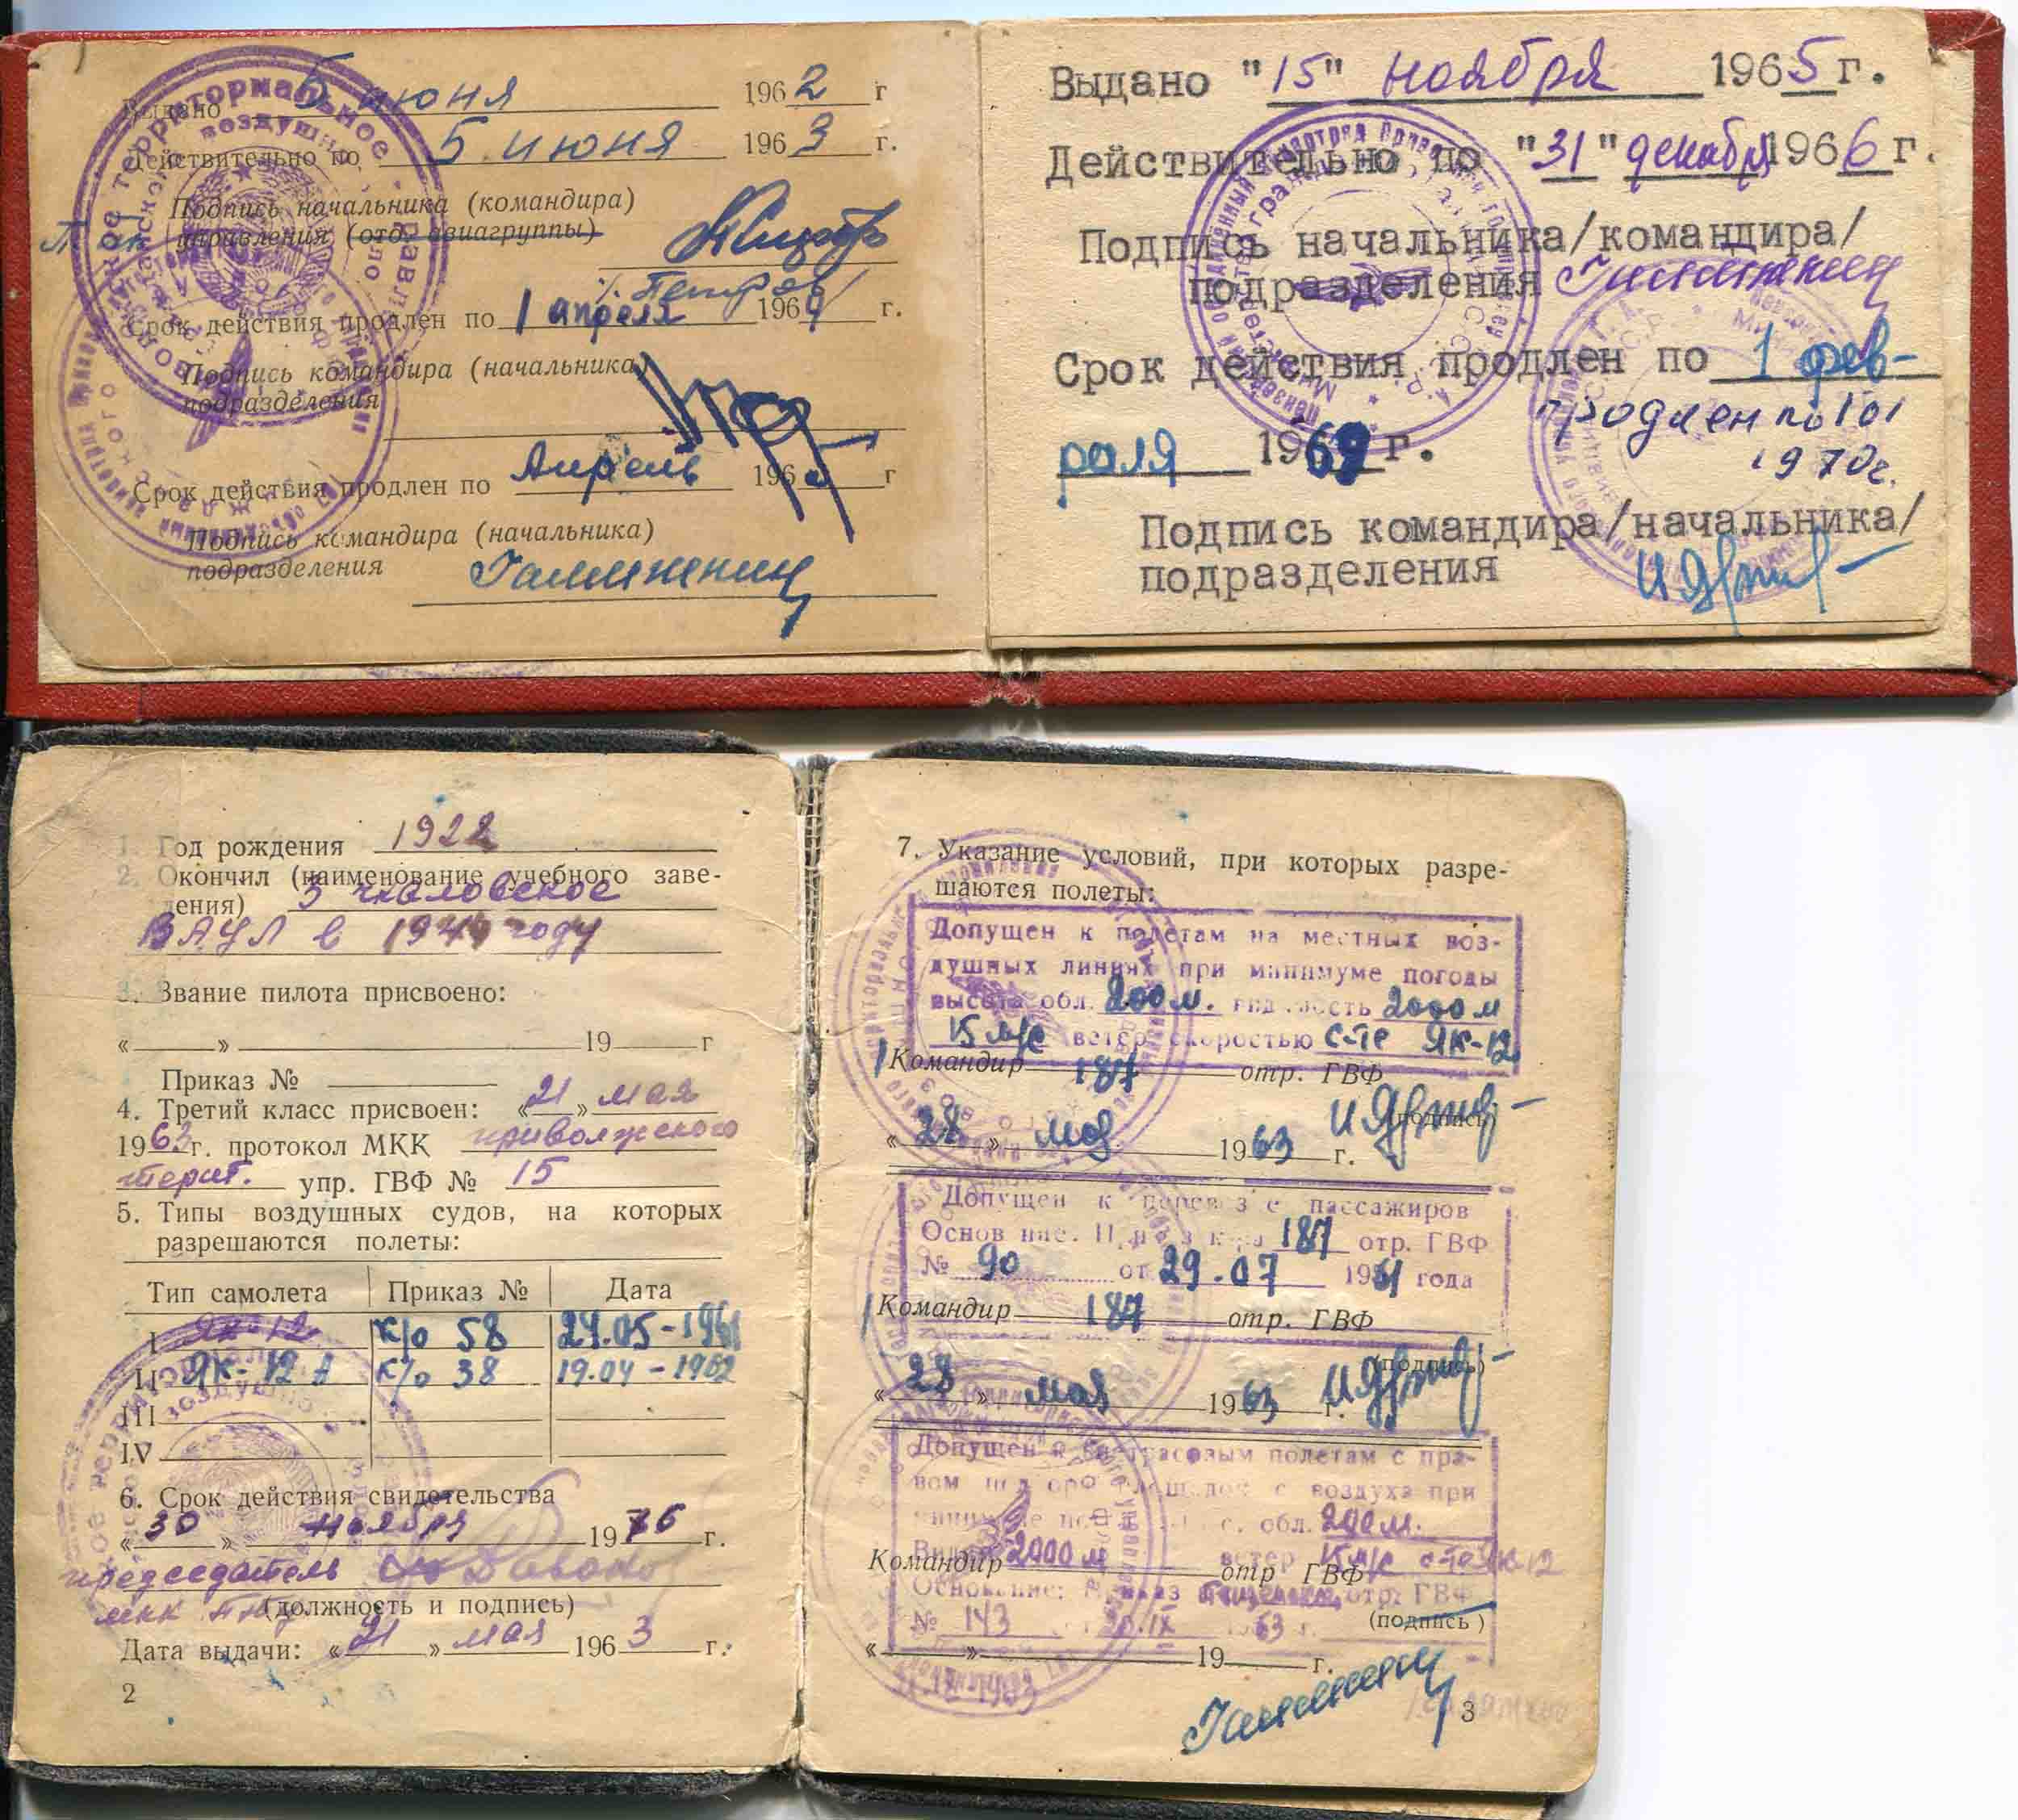 Выдано 5 июня 1962 г
Действительно по 5 июня 1963 г.
Подпись начальника (командира)
управления (отд. авиагруппы)
Срок действия продлен по 1 апреля 1964 г.
Подпись командира (начальника)
подразделения
Срок действия продлен по Апрель 1965 г
Подпись командира (начальника)
подразделения
Выдано "15" ноября 1965 г.
Действительно по "31" декабря 1966 г.
Подпись начальника/командира/
подразделения
Срок действия продлен по 1 фев-
раля 1969 г.
продлен по 1 01
1970г.
Подпись командира/начальника/
подразделения
1. Год рождения 1922
2. Окончил (наименование учебного заве-
дения) 3 чкаловское
ВАУЛ в 194 году
3. Звание пилота присвоено:
« » 19 г
Приказ №
4. Третий класс присвоен: «21» мая
1963 г. протокол МКК приволжского
терит. упр. ГВФ № 15
5. Типы воздушных судов, на которых
разрешаются полеты:
Тип самолета Приказ № Дата
I Як-12 К/о 58 24.05-1961
II ЯК-12 А К/о 38 19.04-1962
III
IV
6. Срок действия свидетельства
«30» ноября 1976 г.
председатель
мкк
(должность и подпись)
Дата выдачи: «21» мая 1963 г.
2
7. Указание условий, при которых разре-
шаются полеты:
Допущен к полетам на местных воз-
душных линиях при минимуме погоды
высота обл. 200 м. видимость 2000 м
15 м/с ветер скоростью с-те ЯК-12
Командир 187 отр. ГВФ
(подпись)
«28» мая 1963 г.
Допущен к перевозке пассажиров
Основание: Приказ к-ра 187 отр. ГВФ
№ 90 от 29.07 1961 года
Командир 187 отр. ГВФ
(подпись)
«28» мая 1963 г.
Допущен к внетрассовым полетам с пра-
вом подбора площадок с воздуха при
обл. 200 м.
2000 м ветер 15 м/с с-те Як-12
Командир отр ГВФ
Основание: Приказ отр. ГВФ
№ 143 IX 63 г.
(подпись)
« » 19 г.
3